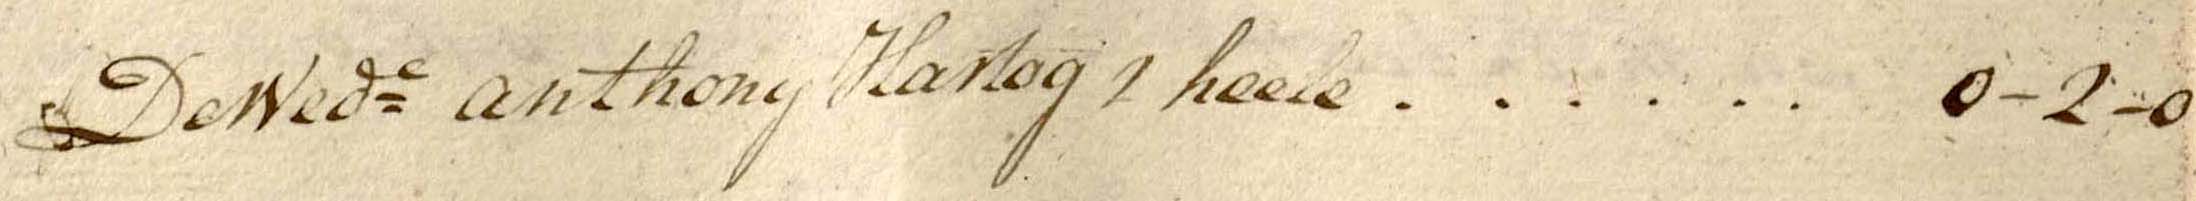 De Wed:e anthony Hartog 1 heele . . . . . . 0-2-0